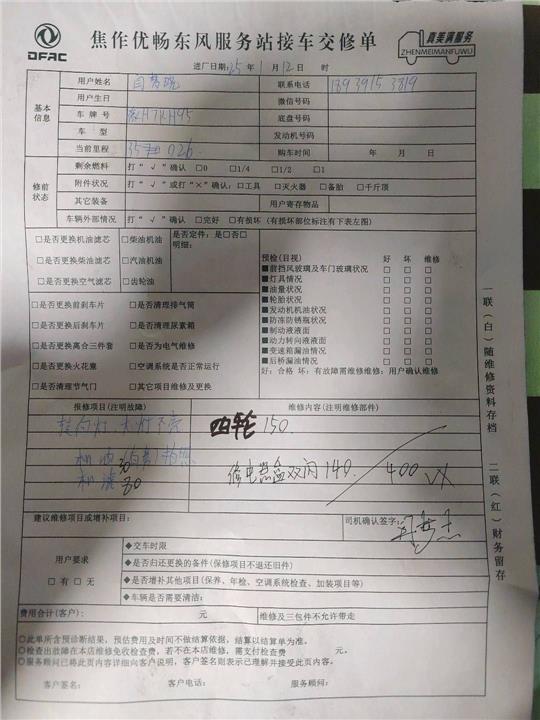 DFAC
焦作优畅东风服务站接车交修单
真美满服务
ZHENMEIMANFUWU
进厂日期:25年1月12日 时
基本信息
用户姓名 联系电话
用户生日 微信号码
车牌号 豫H7KH95 底盘号码
车型 发动机号码
当前里程 购车时间 年 月 日
修前状态
剩余燃料 打“√”确认 □0 □1/4 □1/2 □1
附件状况 打“√”或打“×”确认:□工具 □灭火器 □备胎 □千斤顶
其它装备 用户寄存物品
车辆外部情况 打“√”确认 □完好 □有损坏(有损坏部位标注有下表左图)
□是否更换机油滤芯 □柴油机油 是否定件:是□否□
明细:
□是否更换柴油滤芯 □汽油机油
□是否更换空气滤芯 □齿轮油
□是否更换前刹车片 □是否清理排气筒
□是否更换后刹车片 □是否清理尿素箱
□是否更换离合三件套 □是否为电气维修
□是否更换火花塞 □空调系统是否正常运行
□是否清理节气门 □其它项目维修及更换
预检(目视) 好 坏 维修
■前挡风玻璃及车门玻璃状况 □ □ □
■灯具情况 □ □ □
■油量状况 □ □ □
■轮胎状况 □ □ □
■发动机机油状况 □ □ □
■防冻防锈瓶状况 □ □ □
■制动液液面 □ □ □
■动力转向液液面 □ □ □
■变速箱漏油情况 □ □ □
■后桥漏油情况 □ □ □
好:合格 坏:有故障需维修维修:用户确认维修
报修项目(注明故障) 维修内容(注明维修部件)
转向灯、大灯不亮 四轮 150.
机油
机滤 30 修电器盒双闪 140. 400 VX
建议维修项目或增补项目: 司机确认签字:
用户要求
□有 □无
◆交车时限
◆是否归还更换的备件(保修项目不退还旧件)
◆是否增补其他项目(保养、年检、空调系统检查、加装项目等)
◆车辆是否需要清洁:
费用合计(客户): 元 维修及三包件不允许带走
○此单所含预诊断结果,预估费用及时间不做结算依据,结算以结算单为准。
○检查出故障在本店维修免收检查费,若不在本店维修,需支付检查费 元。
○服务顾问已将此页内容详细向客户说明,客户签名则表示已理解并接受此页内容。
客户签名: 客户电话: 服务顾问:
一联(白)随维修资料存档 二联(红)财务留存